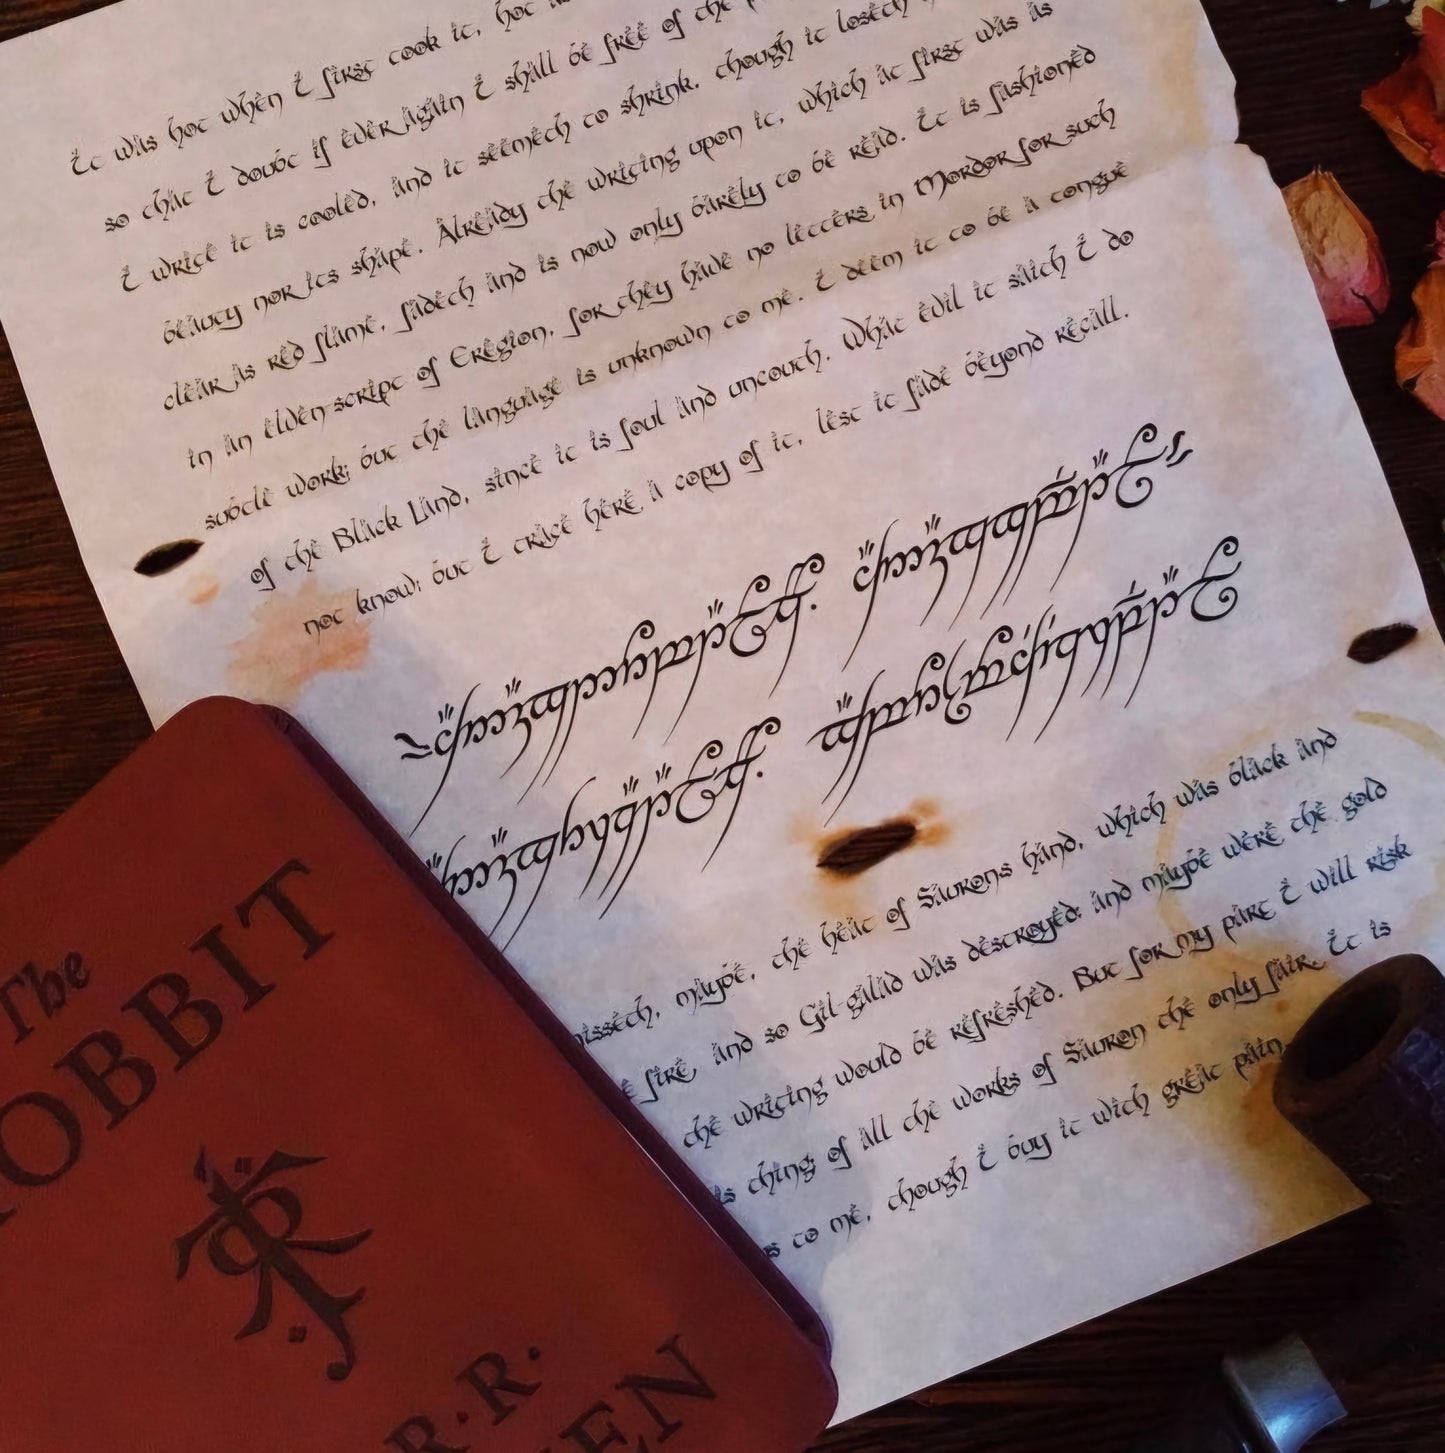 It was hot when I first took it, hot
so that I doubt if ever again I shall be free of the
I write it is cooled, and it seemeth to shrink, though it loseth
beauty nor its shape. Already the writing upon it, which at first was as
clear as red flame, fadeth and is now only barely to be read. It is fashioned
in an elven-script of Eregion, for they have no letters in Mordor for such
subtle work; but the language is unknown to me. I deem it to be a tongue
of the Black Land, since it is foul and uncouth. What evil it saith I do
not know; but I trace here a copy of it, lest it fade beyond recall.
maybe, the heat of Sauron's hand, which was black and
fire, and so Gil-galad was destroyed; and maybe were the gold
the writing would be refreshed. But for my part I will risk
thing: of all the works of Sauron the only fair. It is
to me, though I buy it with great pain.
The
OBBIT
R.R.